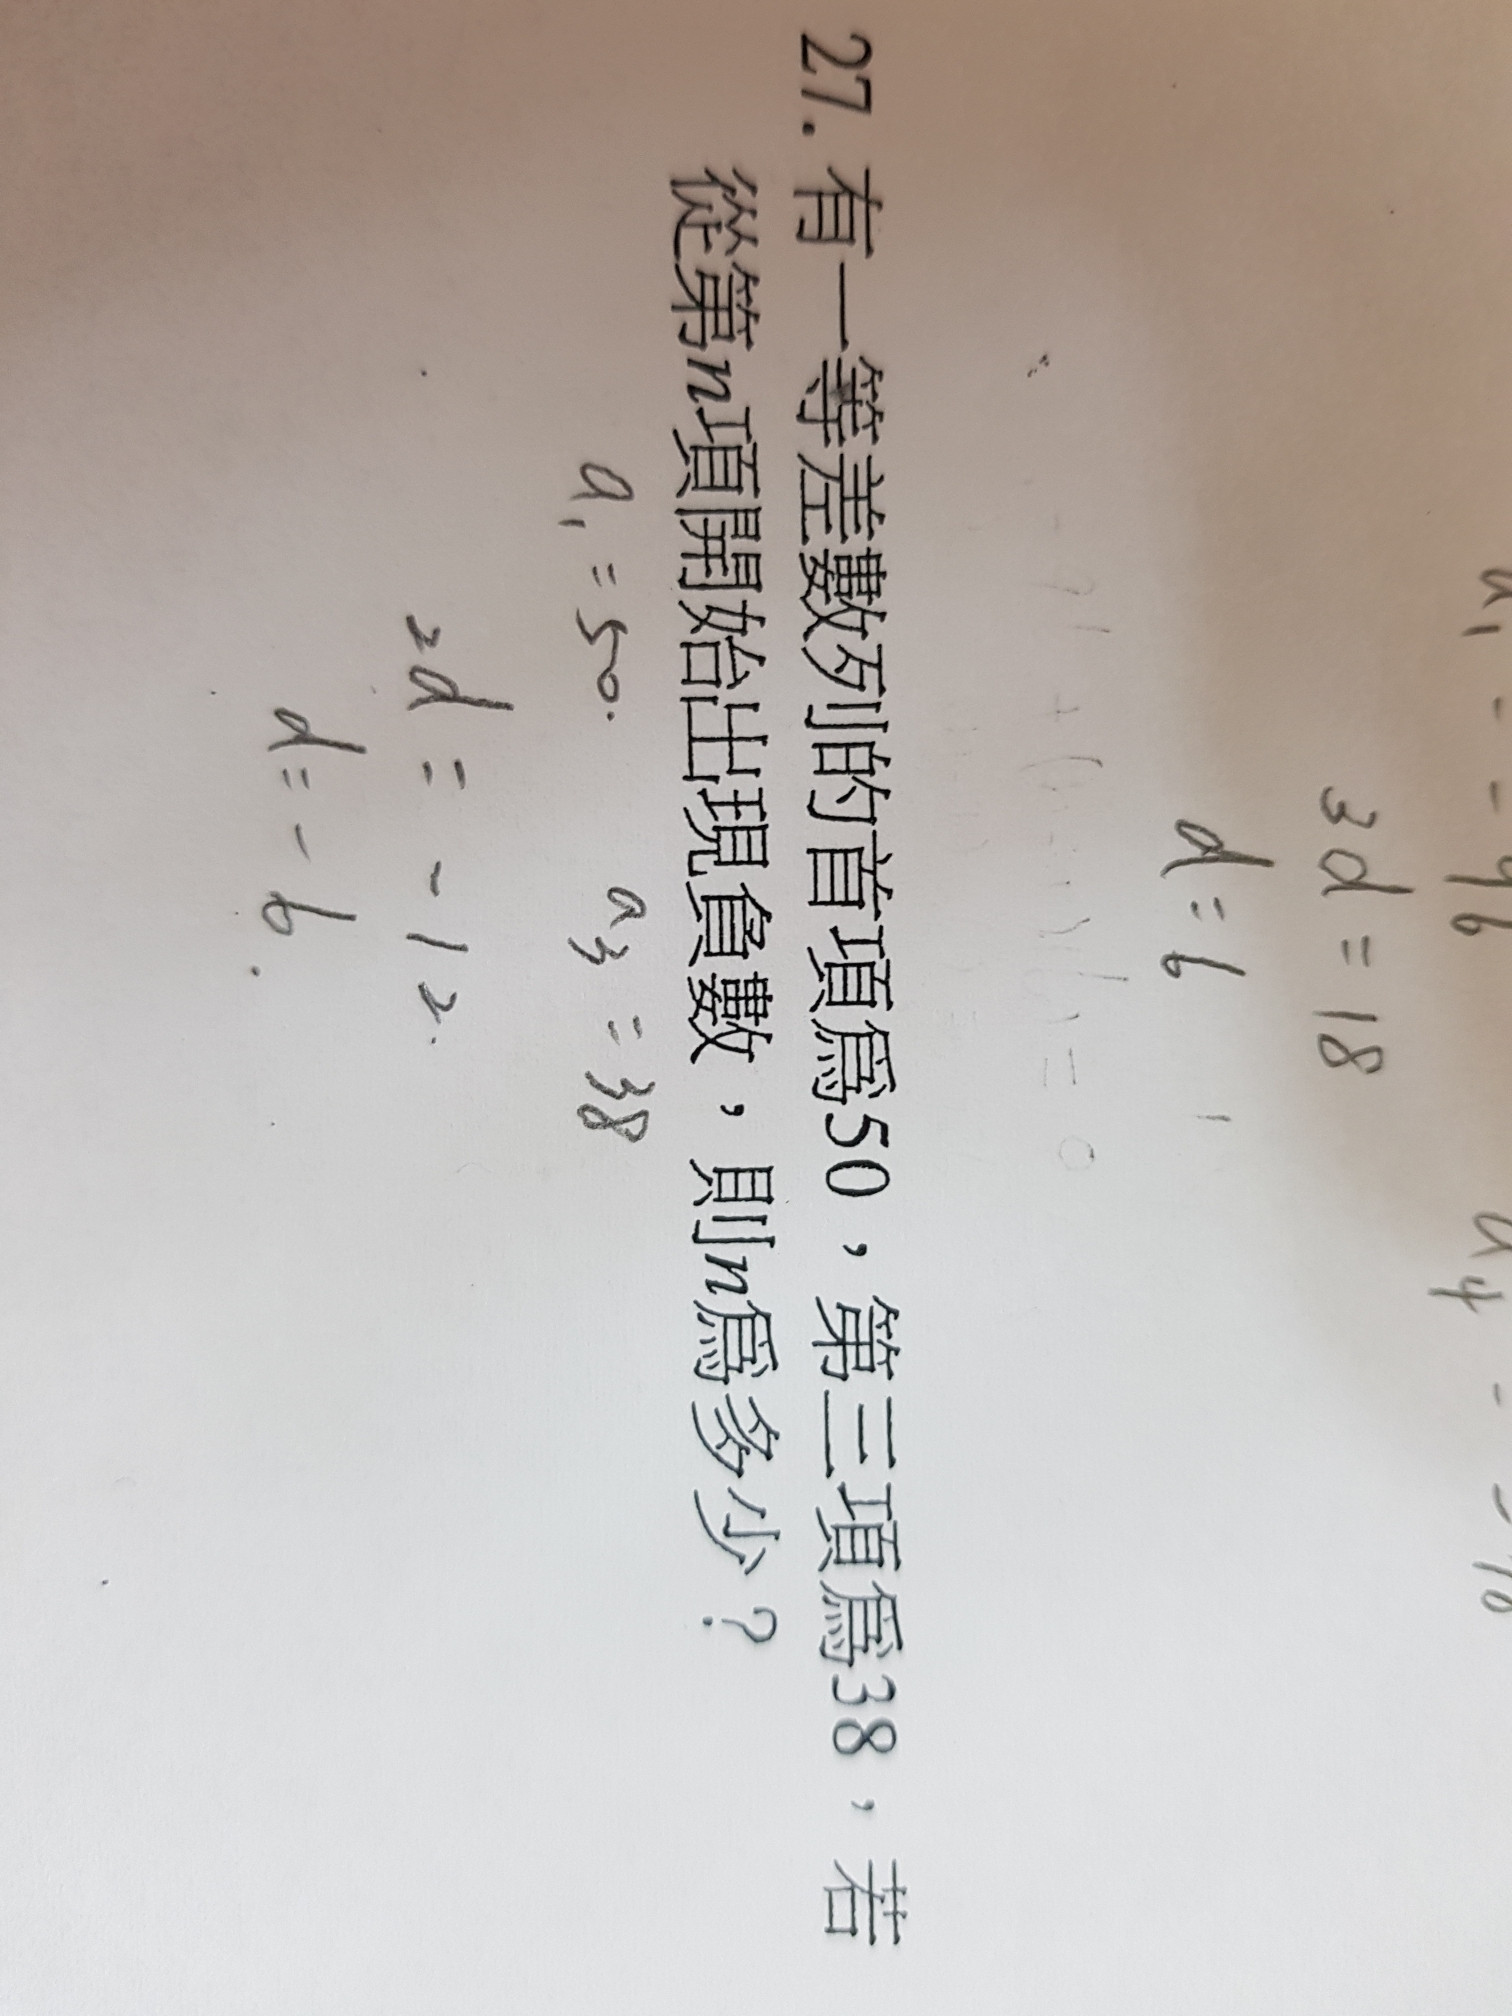 3d = 18
d = 6
27. 有一等差數列的首項為50，第三項為38，若
從第n項開始出現負數，則n為多少？
a₁ = 50. a₃ = 38
2d = -12.
d = -6.